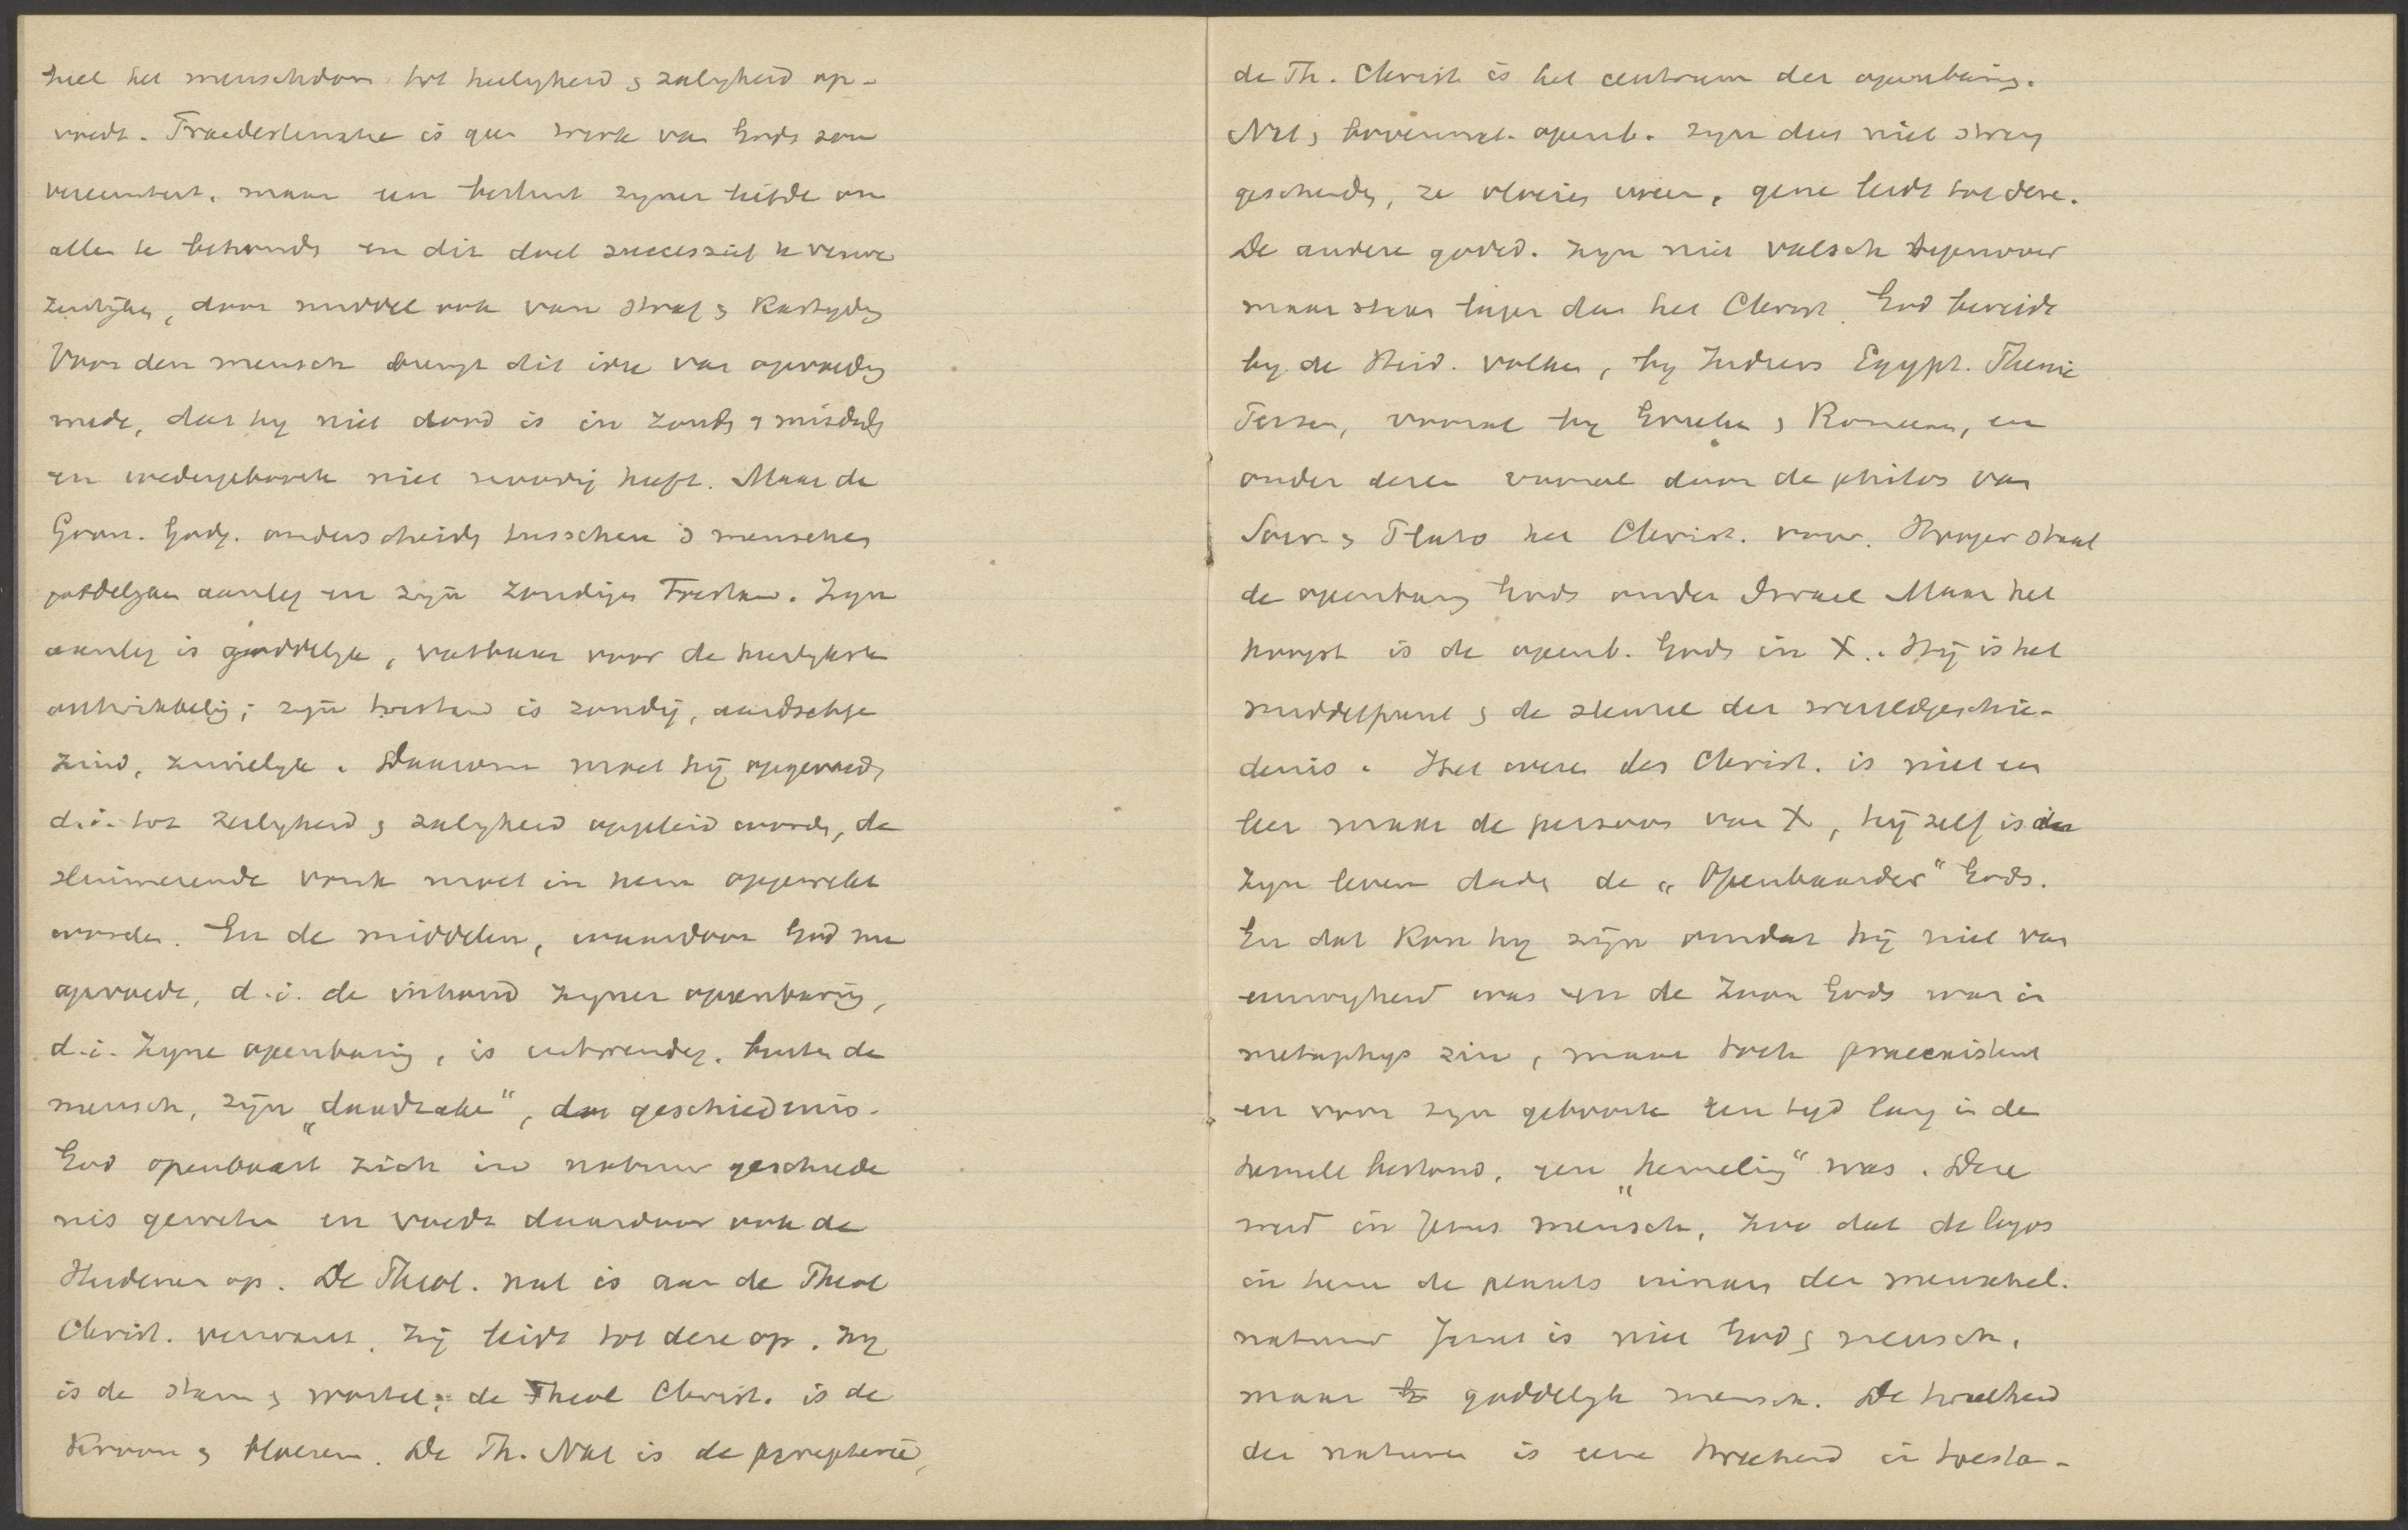 heel het menschdom tot heiligheid & zaligheid op-
voedt. Praedestinatie is geen werk van Gods
maar een besluit zijner liefde om
allen te behouden en dit doel successief te verwe
zenlijken, door middel ook van straf & Kastijding
Voor den mensch brengt dit idee van opvoeding
mede, dat hy niet dood is in zonden & misdaden
en wedergeboorte niet noodig heeft. Maar de
Gron. Godg. onderscheiden tusschen 's menschen
goddelijken aanleg en zijn zondigen Toestand. Zijn
aanleg is goddelijk, vatbaar voor de heerlijkste
ontwikkeling; zijn toestand is zondig, aardschge
zind, zinnelijk. Daarom moet hij opgevoed,
d.i. tot heiligheid & zaligheid opgeleid worden, de
sluimerende vonk moet in hem opgewekt
worden. En de middelen, waardoor God nu
opvoedt, d.i. de inhoud zijner openbaring,
d.i. zyne openbaring, is uitwendig, buiten de
mensch, zijn „daadzaken“, geschiedenis.
God openbaart zich in natuur geschiede
nis geweten en voedt daardoor ook de
Heidenen op. De Theol. nat is aan de Theol
Christ. verwant, zij leidt tot deze op. Zy
is de stam & wortel; de Theol Christ. is de
Kroon & bloesem. De Th. Nat is de peripherie,
de Th. Christ is het centrum der openbaring.
Nat & bovennat. openb. zijn dus niet streng
gescheiden, ze vloeien ineen, gene leidt tot deze.
De andere godsd. zyn niet valsch tegenover
maar staan lager dan het Christ. God bereidt
by de Heid. volken, by Indiers Egypt. Phenic
Perzen, vooral by Grieken & Romeinen, en
onder dezen vooral door de philos van
Socr. & Plato het Christ. voor. Hooger staat
de openbaring Gods onder Israel Maar het
hoogst is de openb. Gods in X. Hij is het
middelpunt & de sleutel der wereldgeschie-
denis. Het wezen des Christ. is niet een
leer maar de persoon van X, hij zelf is in
zyn leven daden de „Openbaarder“ Gods.
En dat Kon hy zijn omdat hij niet van
eeuwigheid was en de Zoon Gods was in
metaphys zin, maar toch praeexistent
en voor zyn geboorte een tyd lang in de
hemel bestond, een „hemeling“ was. Deze
werd in Jezus mensch, zoo dat de logos
in hem de plaats innam der menschel.
natuur Jezus is niet God & mensch,
maar goddelijk mensch. De tweeheid
der naturen is eene tweeheid in toesta-